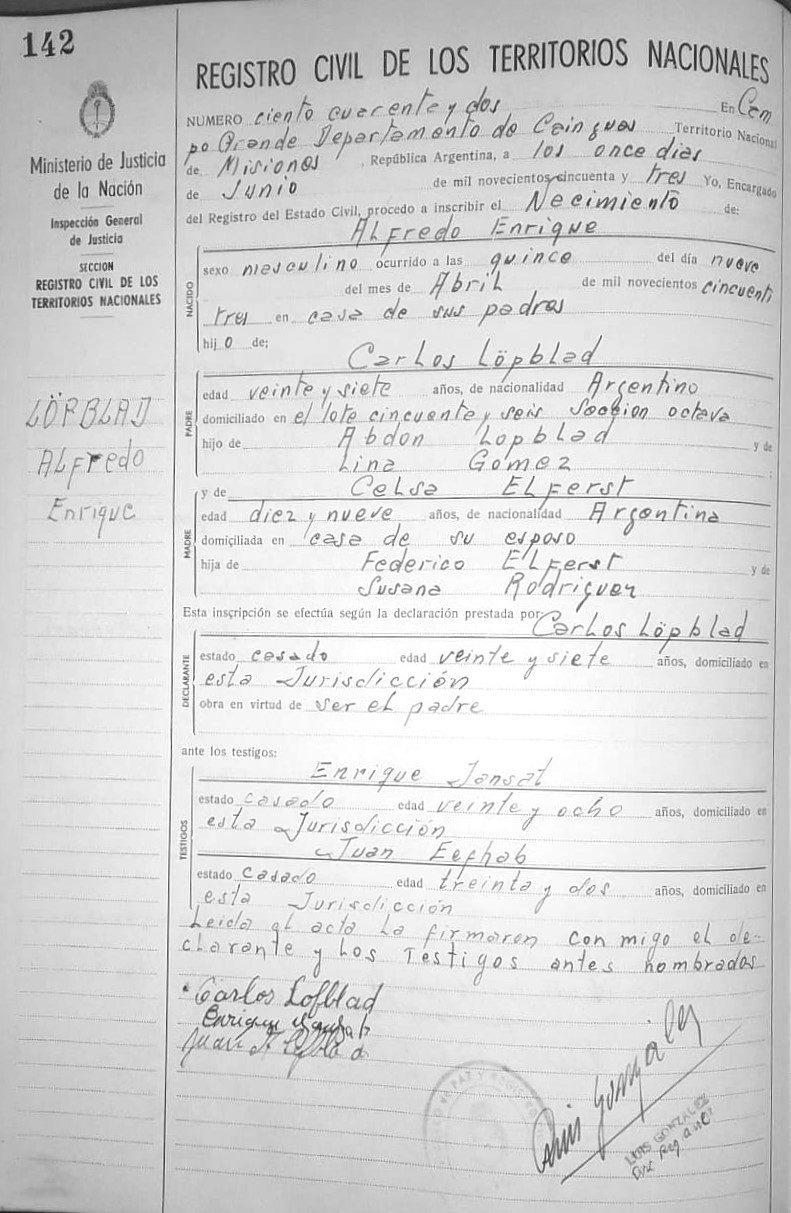 142
Ministerio de Justicia
de la Nación
Inspección General
de Justicia
SECCION
REGISTRO CIVIL DE LOS
TERRITORIOS NACIONALES
LÖPBLAD
ALFredo
Enrique
REGISTRO CIVIL DE LOS TERRITORIOS NACIONALES
NUMERO ciento cuarente y dos En Cam
po Grande Departamento de Cainguas Territorio Nacional
de Misiones, República Argentina, a los once dias
de Junio de mil novecientos cincuenta y tres Yo, Encargado
del Registro del Estado Civil, procedo a inscribir el Necimiento de:
ALFredo Enrique
NACIDO
sexo masculino ocurrido a las quince del día nueve
del mes de Abril de mil novecientos cincuenti
tres en casa de sus padres
hijo de;
Carlos Löpblad
PADRE
edad veinte y siete años, de nacionalidad Argentino
domiciliado en el lote cincuente y seis Seccion octava
hijo de Abdon Lopblad y de
Lina Gomez ;
y de Celsa ELFerst
MADRE
edad diez y nueve años, de nacionalidad Argentina
domiciliada en casa de su esposo
hija de Federico ELFerst y de
Susana Rodriguez
Esta inscripción se efectúa según la declaración prestada por: Carlos Löpblad
DECLARANTE
estado casado edad veinte y siete años, domiciliado en
esta Jurisdicción
obra en virtud de ser el padre
ante los testigos:
Enrique Jansat
TESTIGOS
estado casado edad veinte y ocho años, domiciliado en
esta Jurisdicción
Juan
estado Casado edad treinta y dos años, domiciliado en
esta Jurisdicción
Leida el acta la firmaron con migo el de-
clarante y los Testigos antes nombrados
Carlos Lofblad
Enrique
Juan
Luis Gonzalez
LUIS GONZALEZ